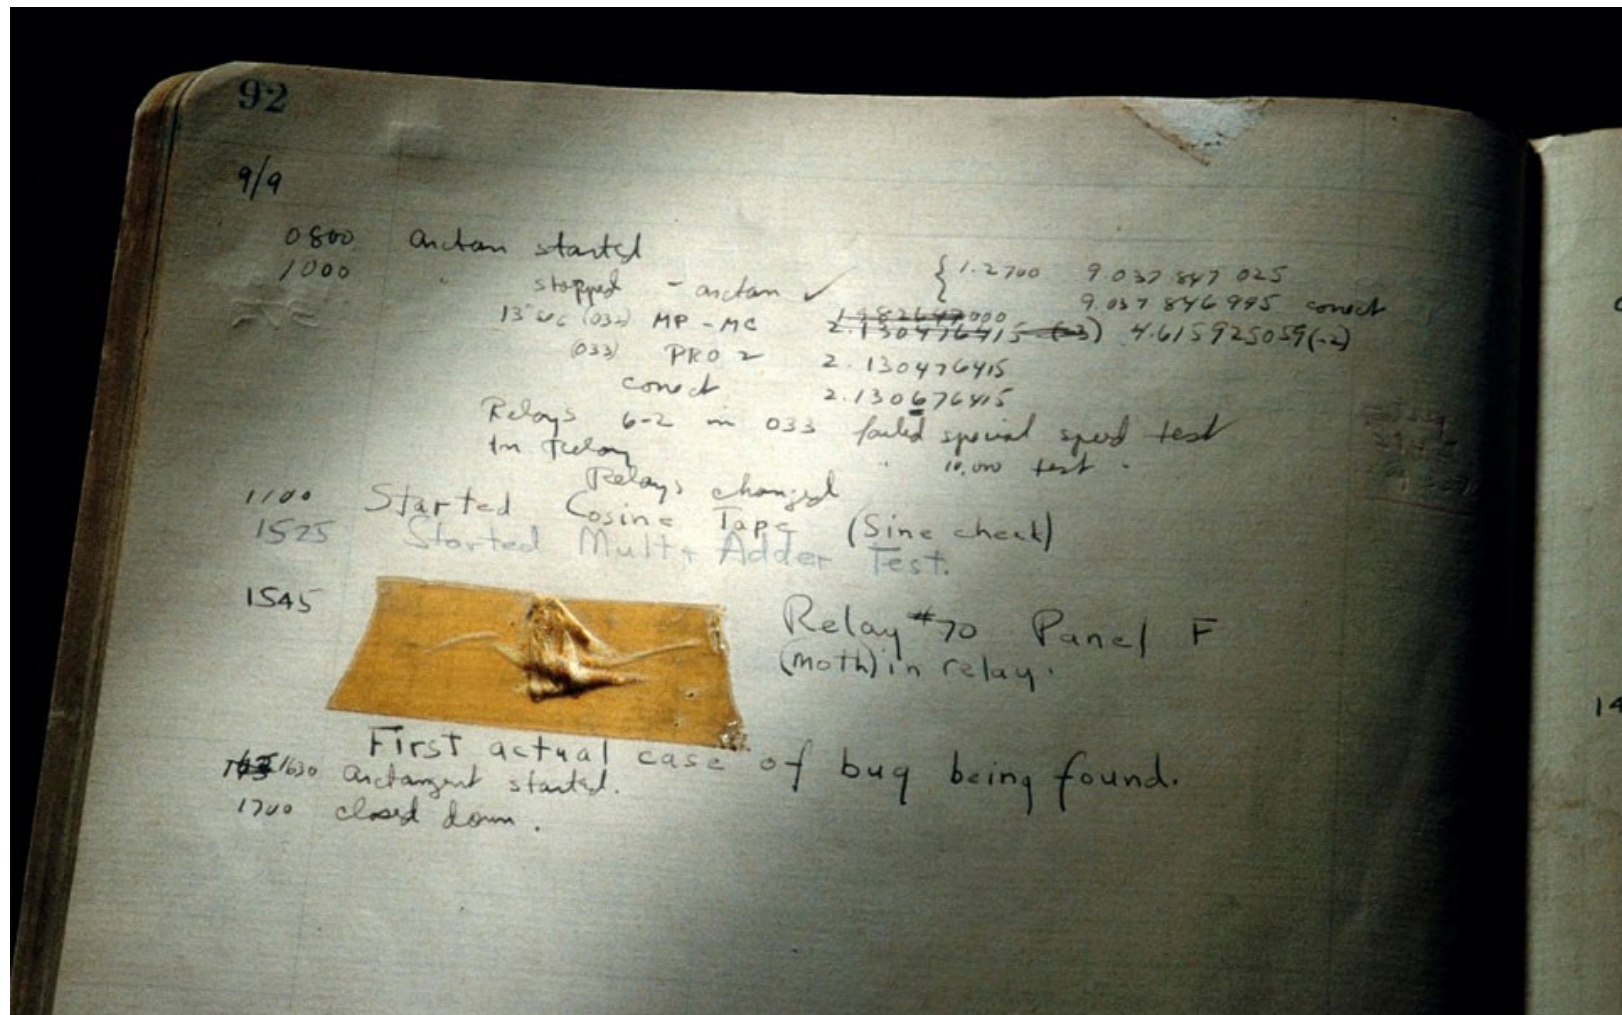 92
9/9
0800 arctan started
1000 " stopped - arctan ✓ { 1.2700 9.037 847 025
9.037 846 995 correct
13" (032) MP - MC 2.130476415 (-3) 4.615925059(-2)
(033) PRO 2 2.130476415
correct 2.130676415
Relays 6-2 in 033 failed special speed test
In Relay " 10,000 test .
Relays changed
1100 Started Cosine Tape (Sine check)
1525 Started Mult + Adder Test.
1545 Relay #70 Panel F
(moth) in relay.
First actual case of bug being found.
1630 arctangent started.
1700 closed down .
14